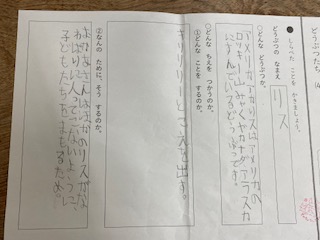 どうぶつたち
● しらべた ことを かきましょう。
どうぶつの なまえ
リス
○どんな どうぶつか。
アメリカアカリスはアメリカの
ロッキー山みゃくやカナダ、アラスカ
にすんでいるどうぶつです。
○どんな ちえを つかうのか。
①どんな ことを するのか。
キリリリーとこえを出す。
②なんの ために、そう するのか。
おかあさんはほかのリスがな
わばりに入ってこないようにして、
子どもたちをまもるため。